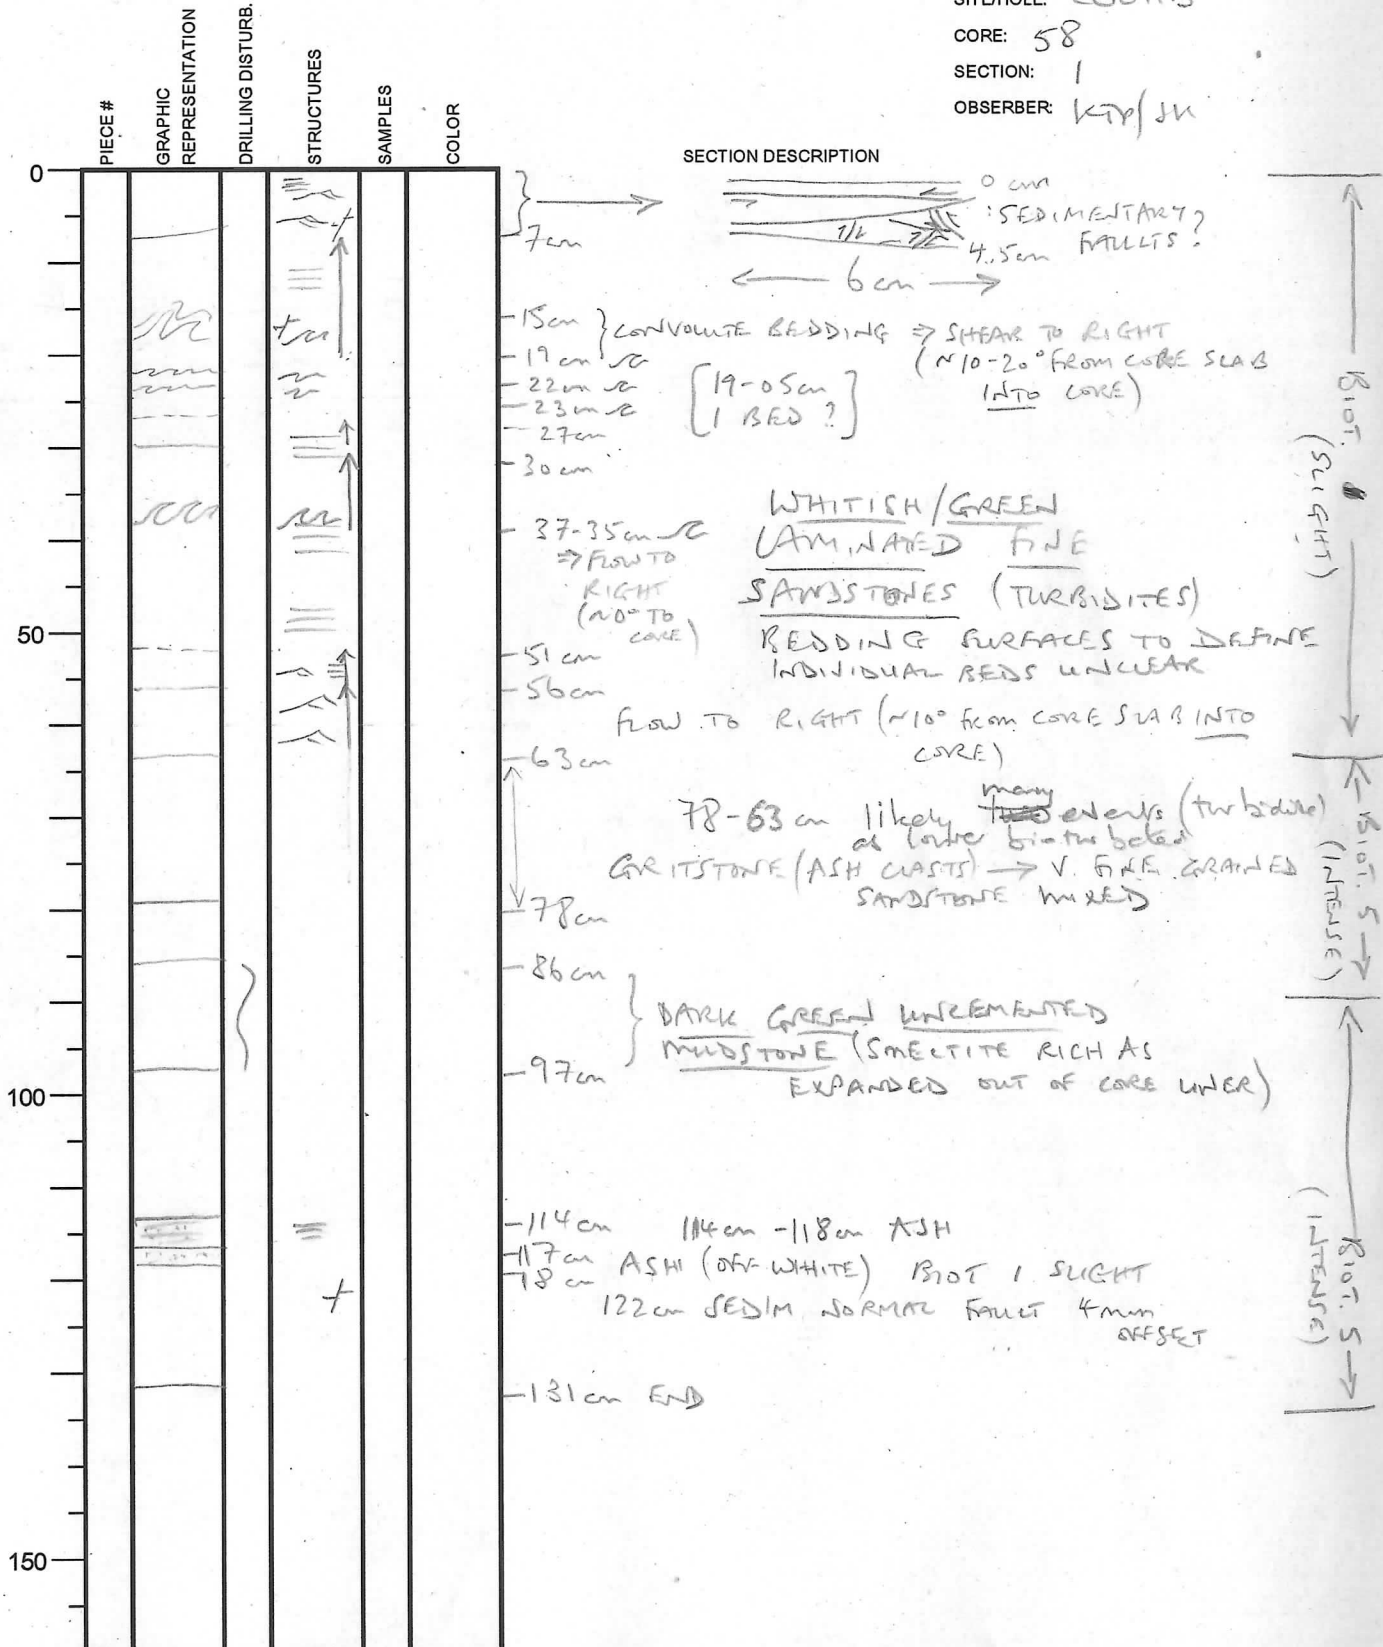 SITE/HOLE:
CORE: 58
SECTION: 1
OBSERBER:
PIECE #
GRAPHIC
REPRESENTATION
DRILLING DISTURB.
STRUCTURES
SAMPLES
COLOR
SECTION DESCRIPTION
0
50
100
150
0 cm
: SEDIMENTARY ?
FAULTS ?
4.5cm
6 cm
7cm
15cm } CONVOLUTE BEDDING ⇒ SHEAR TO RIGHT
19cm
(~10-20° FROM CORE SLAB
INTO CORE)
22cm
23cm
[19-05cm
1 BED ?]
27cm
30cm
37-35cm
⇒ FLOW TO
RIGHT
(~0° TO
CORE)
WHITISH/GREEN
LAMINATED FINE
SANDSTONES (TURBIDITES)
BEDDING SURFACES TO DEFINE
INDIVIDUAL BEDS UNCLEAR
51cm
56cm
FLOW TO RIGHT (~10° FROM CORE SLAB INTO
CORE)
63cm
78-63 cm likely many events (turbidite)
as lower bioturbated
GRITSTONE (ASH CLASTS) → V. FINE GRAINED
SANDSTONE MIXED
78cm
86cm
DARK GREEN UNCEMENTED
MUDSTONE (SMECTITE RICH AS
EXPANDED OUT OF CORE LINER)
97cm
114cm 114cm -118cm ASH
117cm ASH (OFF-WHITE) BIOT 1 SLIGHT
18cm
122cm SEDIM NORMAL FAULT 4mm
OFFSET
131cm END
BIOT.
(SLIGHT)
BIOT. 5
(INTENSE)
BIOT. 5
(INTENSE)